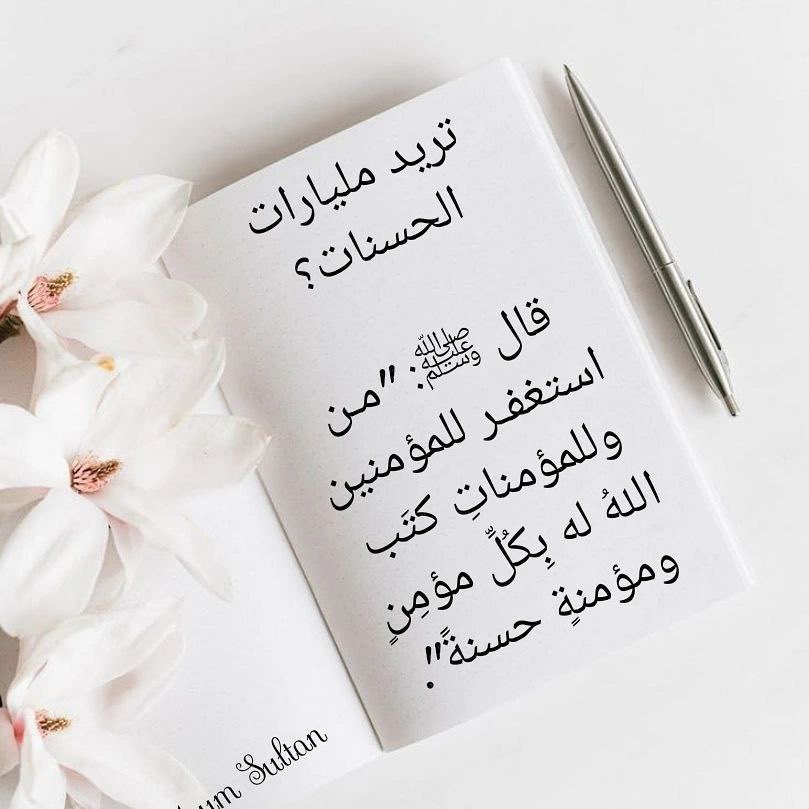 تريد مليارات
الحسنات؟
قال ﷺ: "من
استغفر للمؤمنين
وللمؤمناتِ كتَب
اللهُ له بِكُلِّ مؤمِنٍ
ومؤمنةٍ حسنةً".
Sultan